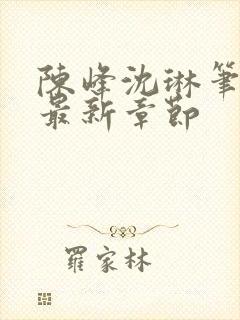 陳峰沈琳筆
最新章節
羅家林